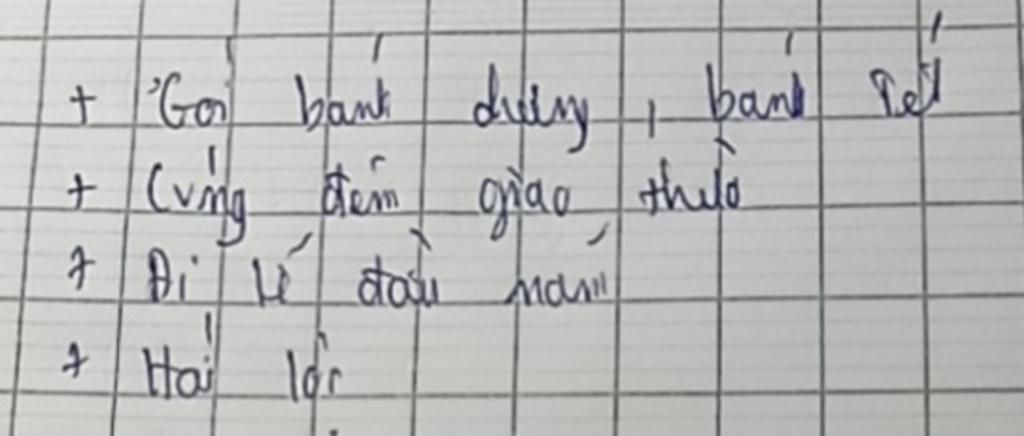 + Gói bánh chưng, bánh Tét
+ Cúng đêm giao thừa
+ Đi lễ đầu năm
+ Hái lộc